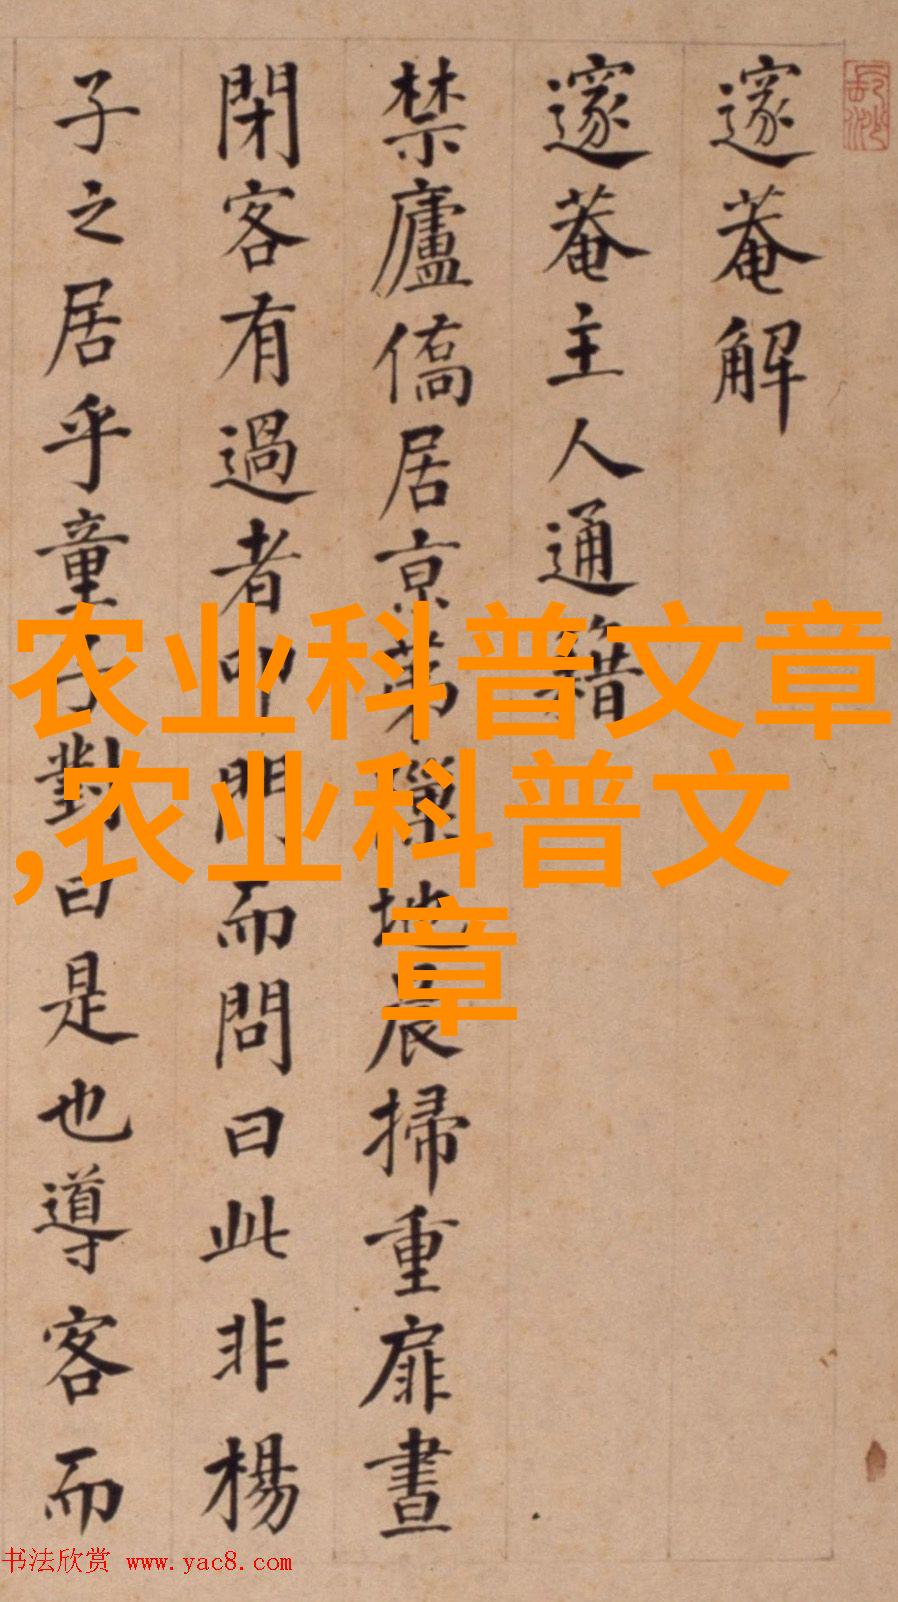 邃菴解
邃菴主人通籍
禁廬僑居京第
地晨掃重扉晝
閉客有過者叩門而問曰此非楊
子之居乎童子對曰是也導客而
农业科普文章
,农业科普文
章
书法欣赏 www.yac8.com